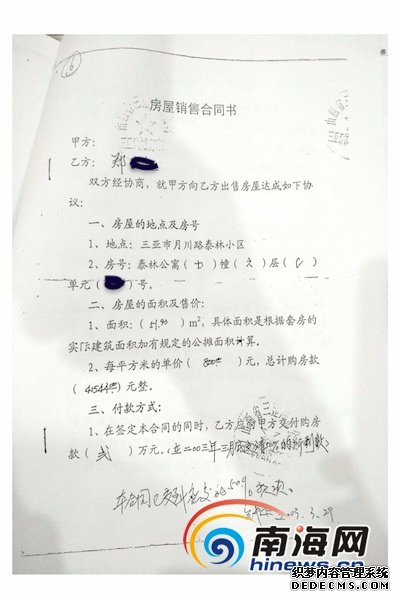 6
房屋销售合同书
甲方：
乙方： 郑
双方经协商，就甲方向乙方出售房屋达成如下协
议：
一、房屋的地点及房号
1、地点：三亚市月川路泰林小区
2、房号：泰林公寓（ ）幢（ ）层（ ）
单元（ ）号。
二、房屋的面积及售价：
1、面积：（51.93）m²，具体面积是根据套房的
实际建筑面积加有规定的公摊面积计算。
2、每平方米的单价（800）元，总计购房款
（41544）元整。
三、付款方式：
1、在签定本合同的同时，乙方应向甲方交付购房
款（贰）万元。
本合同已交到 50%
2003.3.29
南海网
hinews.cn
织梦内容管理系统
DEDECMS.COM